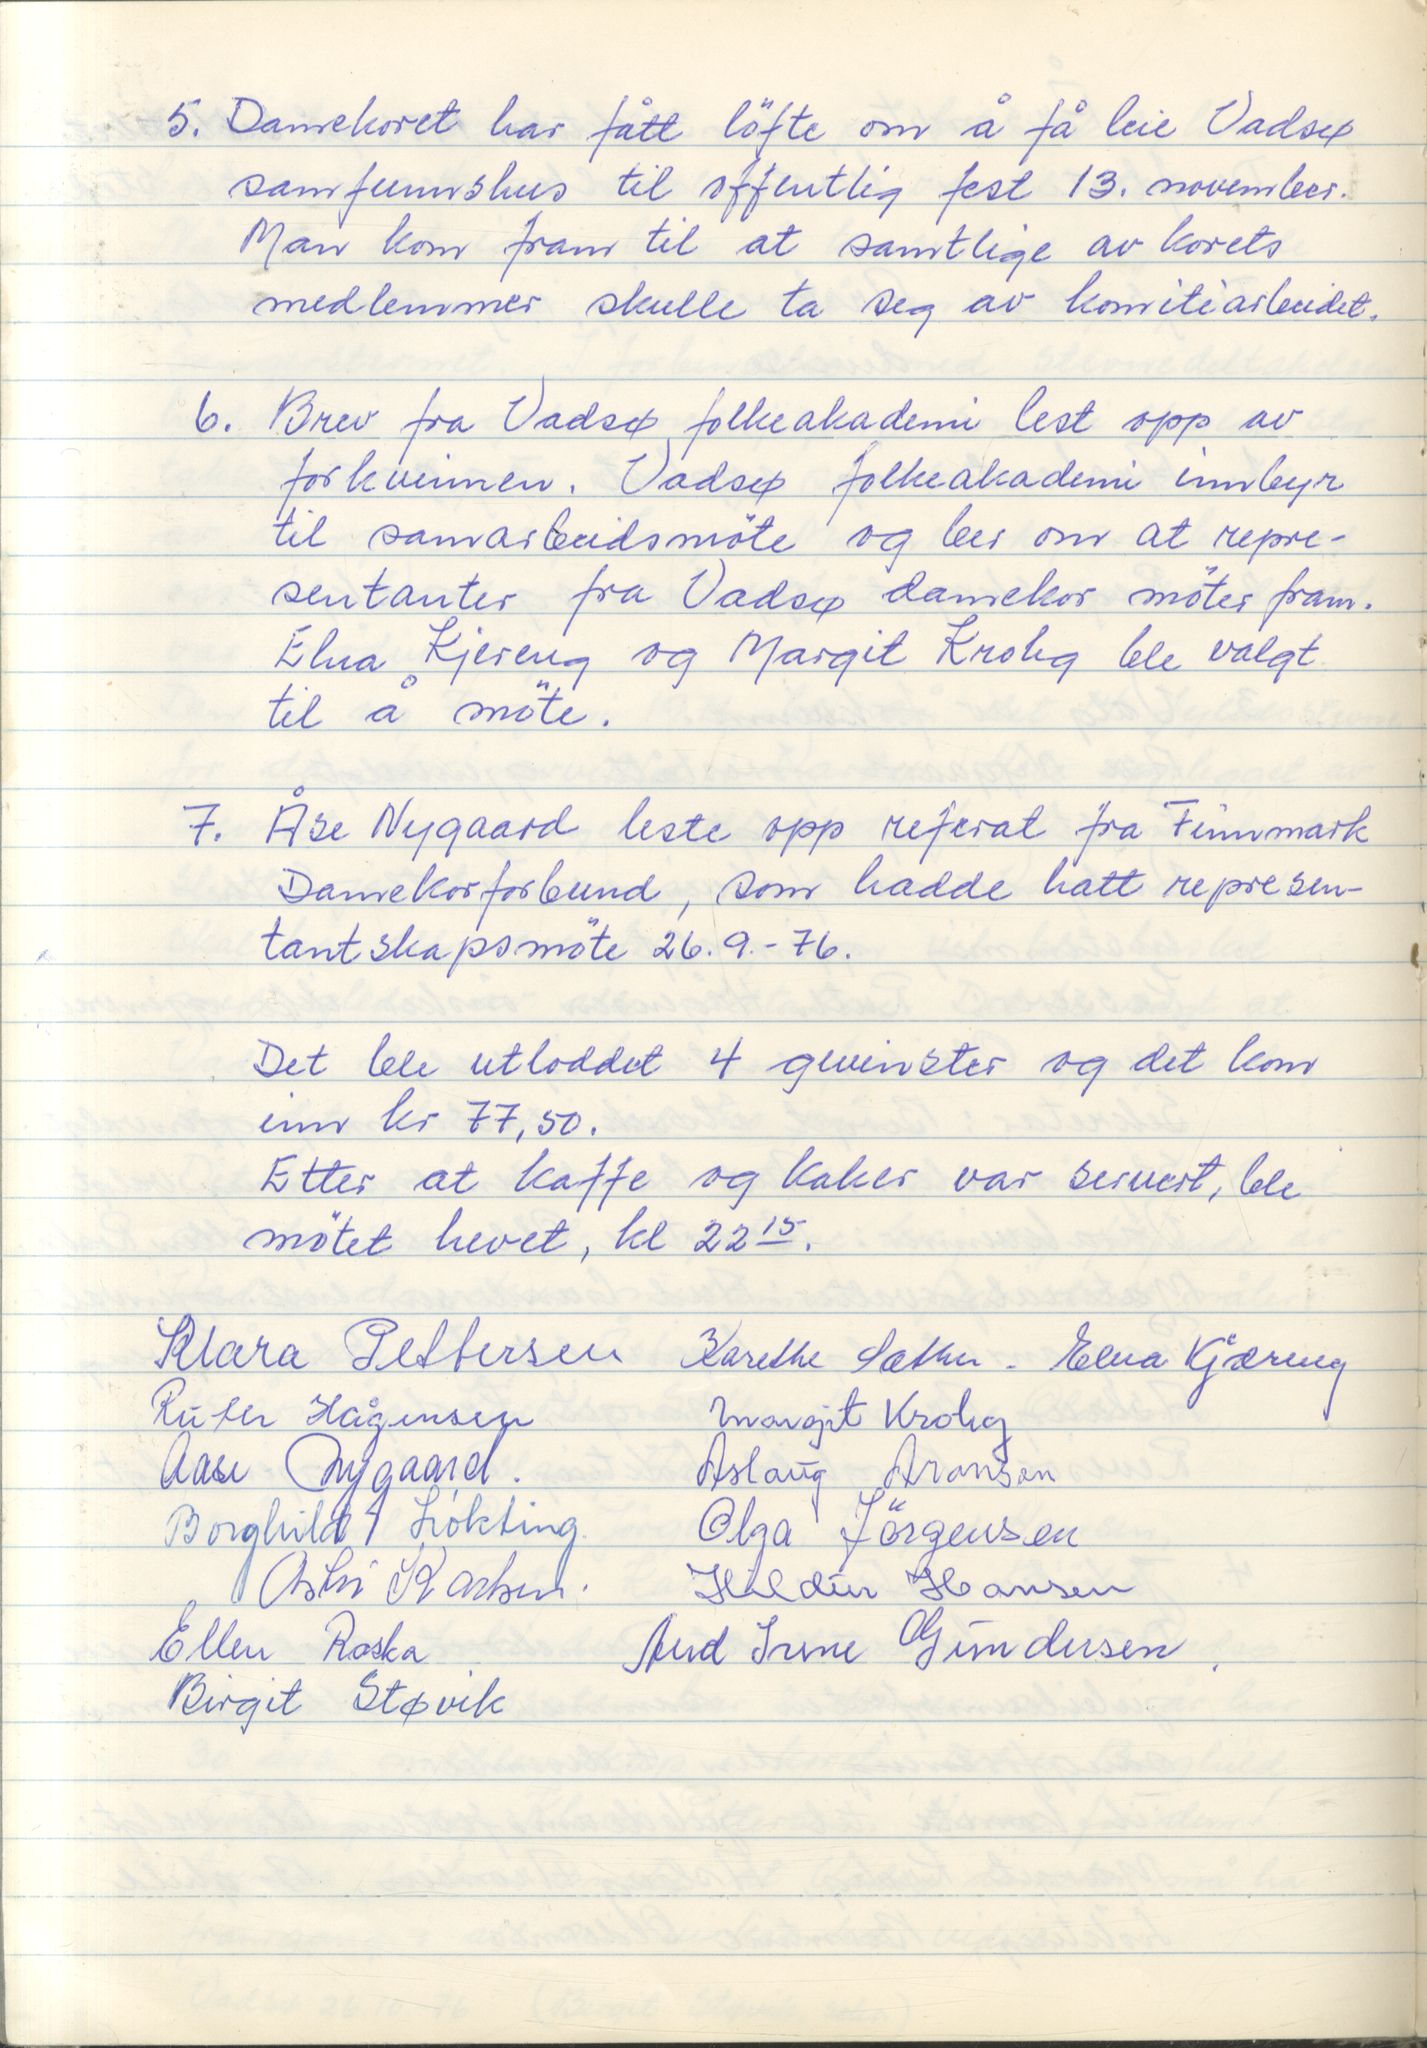 5. Damekoret har fått löfte om å få leie Vadsø
samfunnshus til offentlig fest 13. november.
Man kom fram til at samtlige av korets
medlemmer skulle ta seg av komitéarbeidet.
6. Brev fra Vadsø folkeakademi lest opp av
forkvinnen. Vadsø folkeakademi innbyr
til samarbeidsmöte og ber om at repre-
sentanter fra Vadsø damekor möter fram.
Elna Kjereng og Margit Krohg ble valgt
til å möte.
7. Åse Nygaard leste opp referat fra Finnmark
Damekorforbund, som hadde hatt represen-
tantskapsmöte 26.9.-76.
Det ble utloddet 4 gevinster og det kom
inn kr 77,50.
Etter at kaffe og kaker var servert, ble
mötet hevet, kl 22 15.
Klara Pettersen Karethe Sæther - Elna Kjæreng
Ruth Hågensen Margit Krohg
Aase Nygaard. Aslaug Aronsen
Borghild Løkting. Olga Jörgensen
Karlsen. Hildur Hansen
Ellen Raska Aud Irene Gundersen.
Birgit Støvik